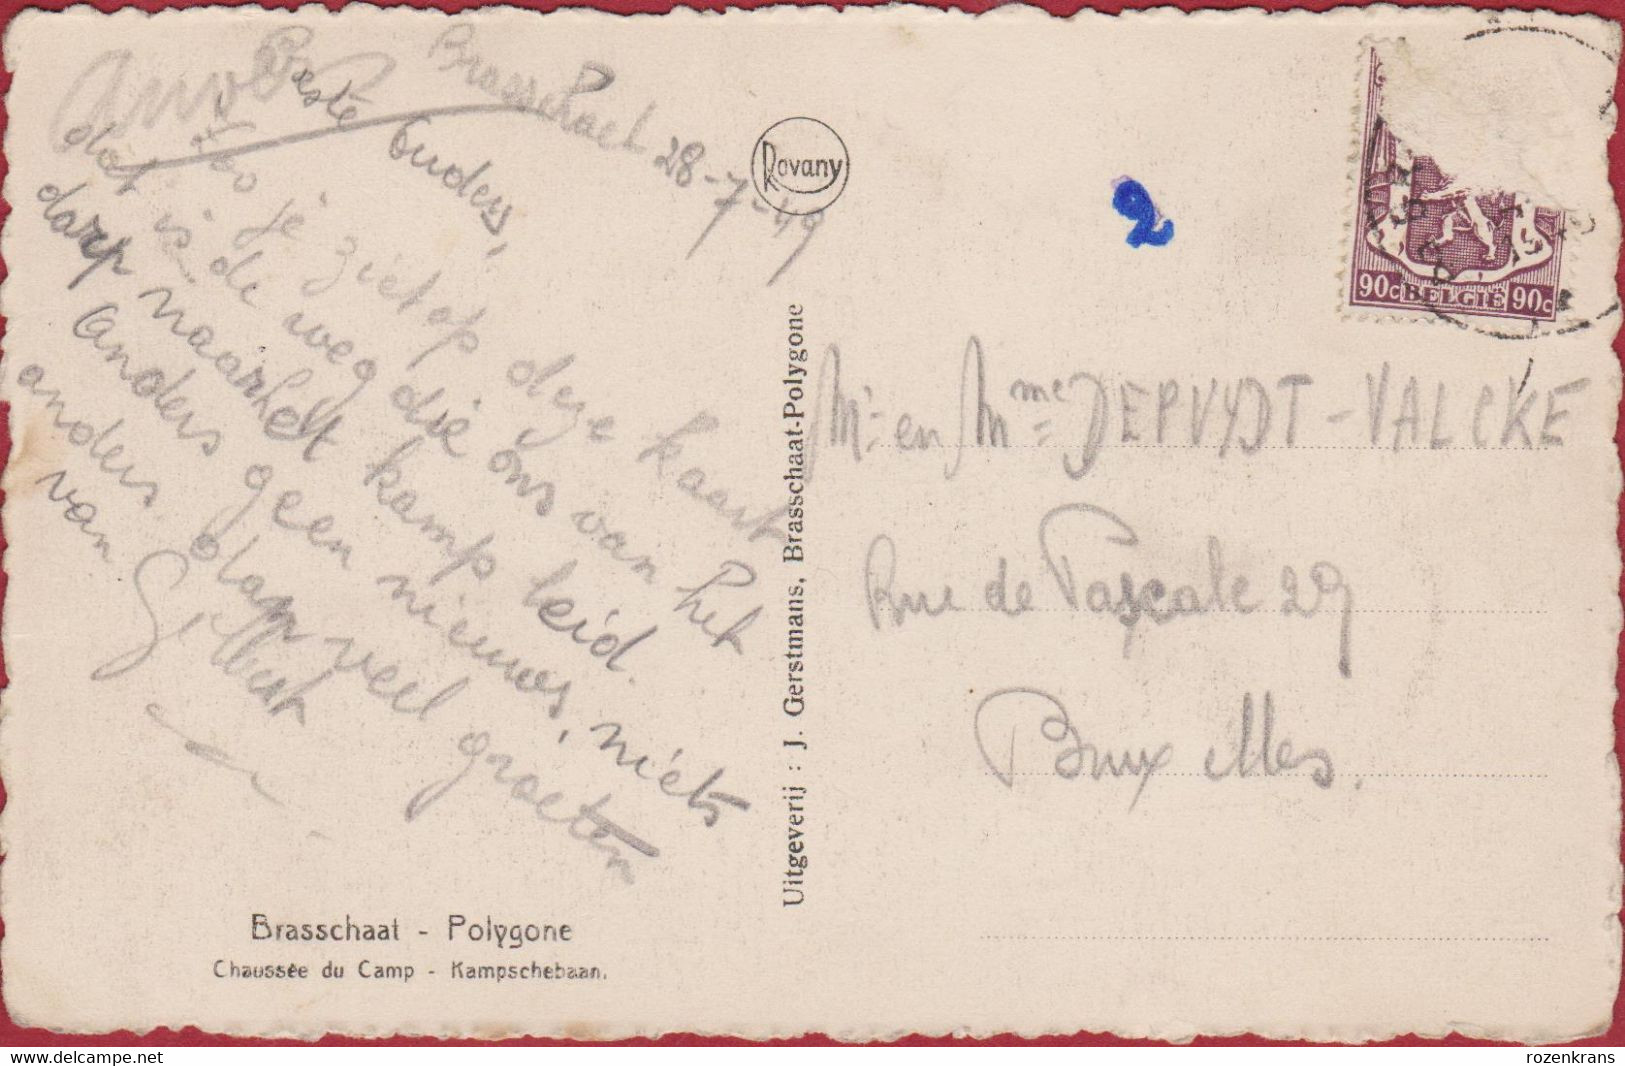 Brasschaet 28-7-49
Beste Ouders,
Zo je ziet op deze kaart
dat is de weg die ons van het
dorp naar het kamp leid.
Anders geen nieuws, niets
anders dan veel groeten
van Gilbert
Brasschaat - Polygone
Chaussée du Camp - Kampschebaan.
Rovany
Uitgeverij : J. Gerstmans, Brasschaat-Polygone
2
90c BELGIE 90c
Mr en Mme DEPUYDT-VALCKE
Rue de Pascale 29
Bruxelles.
delcampe.net
rozenkrans